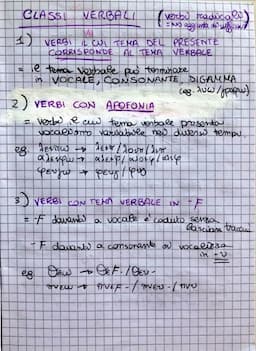 CLASSI VERBALI (verbi radicali
= no aggiunta di suffissi)
1) VERBI IL CUI TEMA DEL PRESENTE
CORRISPONDE AL TEMA VERBALE
= il tema verbale può terminare
in VOCALE, CONSONANTE, DIGAMMA
(eg. λυω/γραφω)
2) VERBI CON APOFONIA
= verbi il cui tema verbale presenta
vocalismo variabile nei diversi tempi.
eg. λειπω → λειπ/λοιπ/λιπ
αλειφω → αλειφ/αλοιφ/αλιφ
φευγω → φευγ/φυγ
3) VERBI CON TEMA VERBALE IN -F
= -F davanti a vocale è caduto senza
lasciare tracce
-F davanti a consonante si vocalizza
in -υ
eg θεω → θεF-/θευ-
πνεω → πνεF-/πνευ-/πνυ